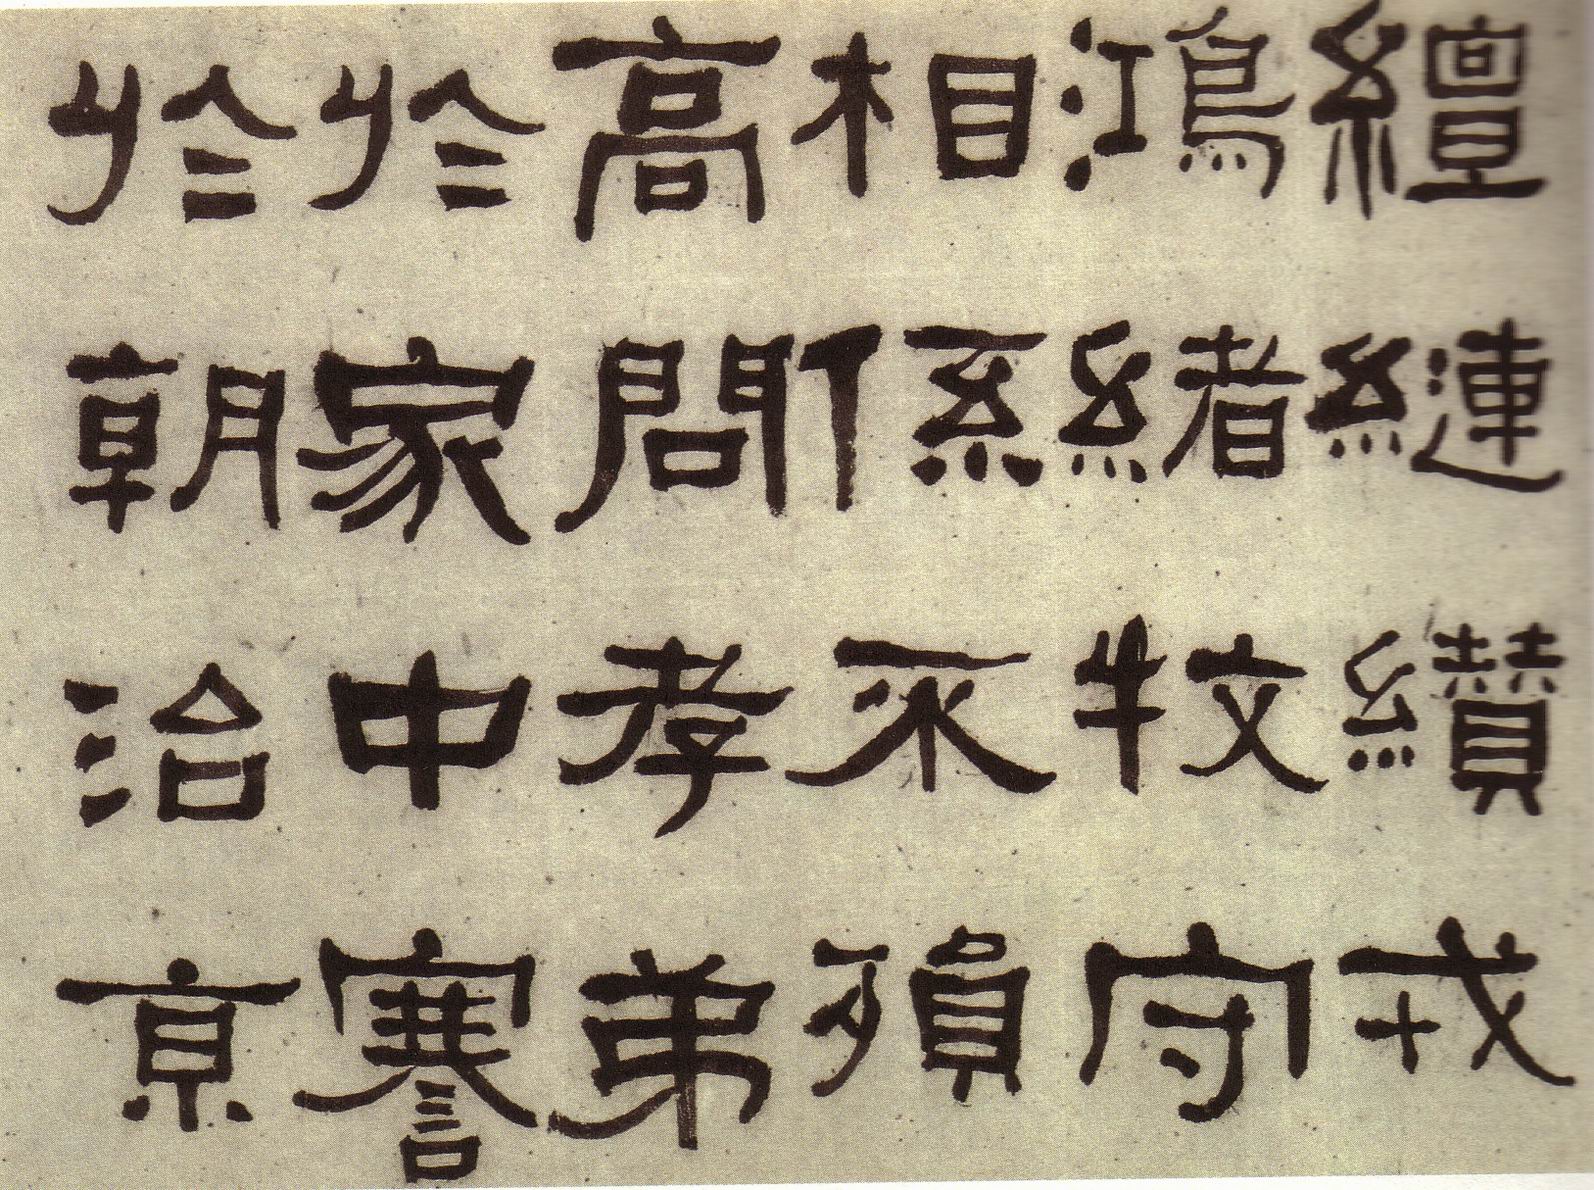 繵縺纘戎
鴻緒牧守
相係不殞
高問孝弟
於家中謇
於朝治京